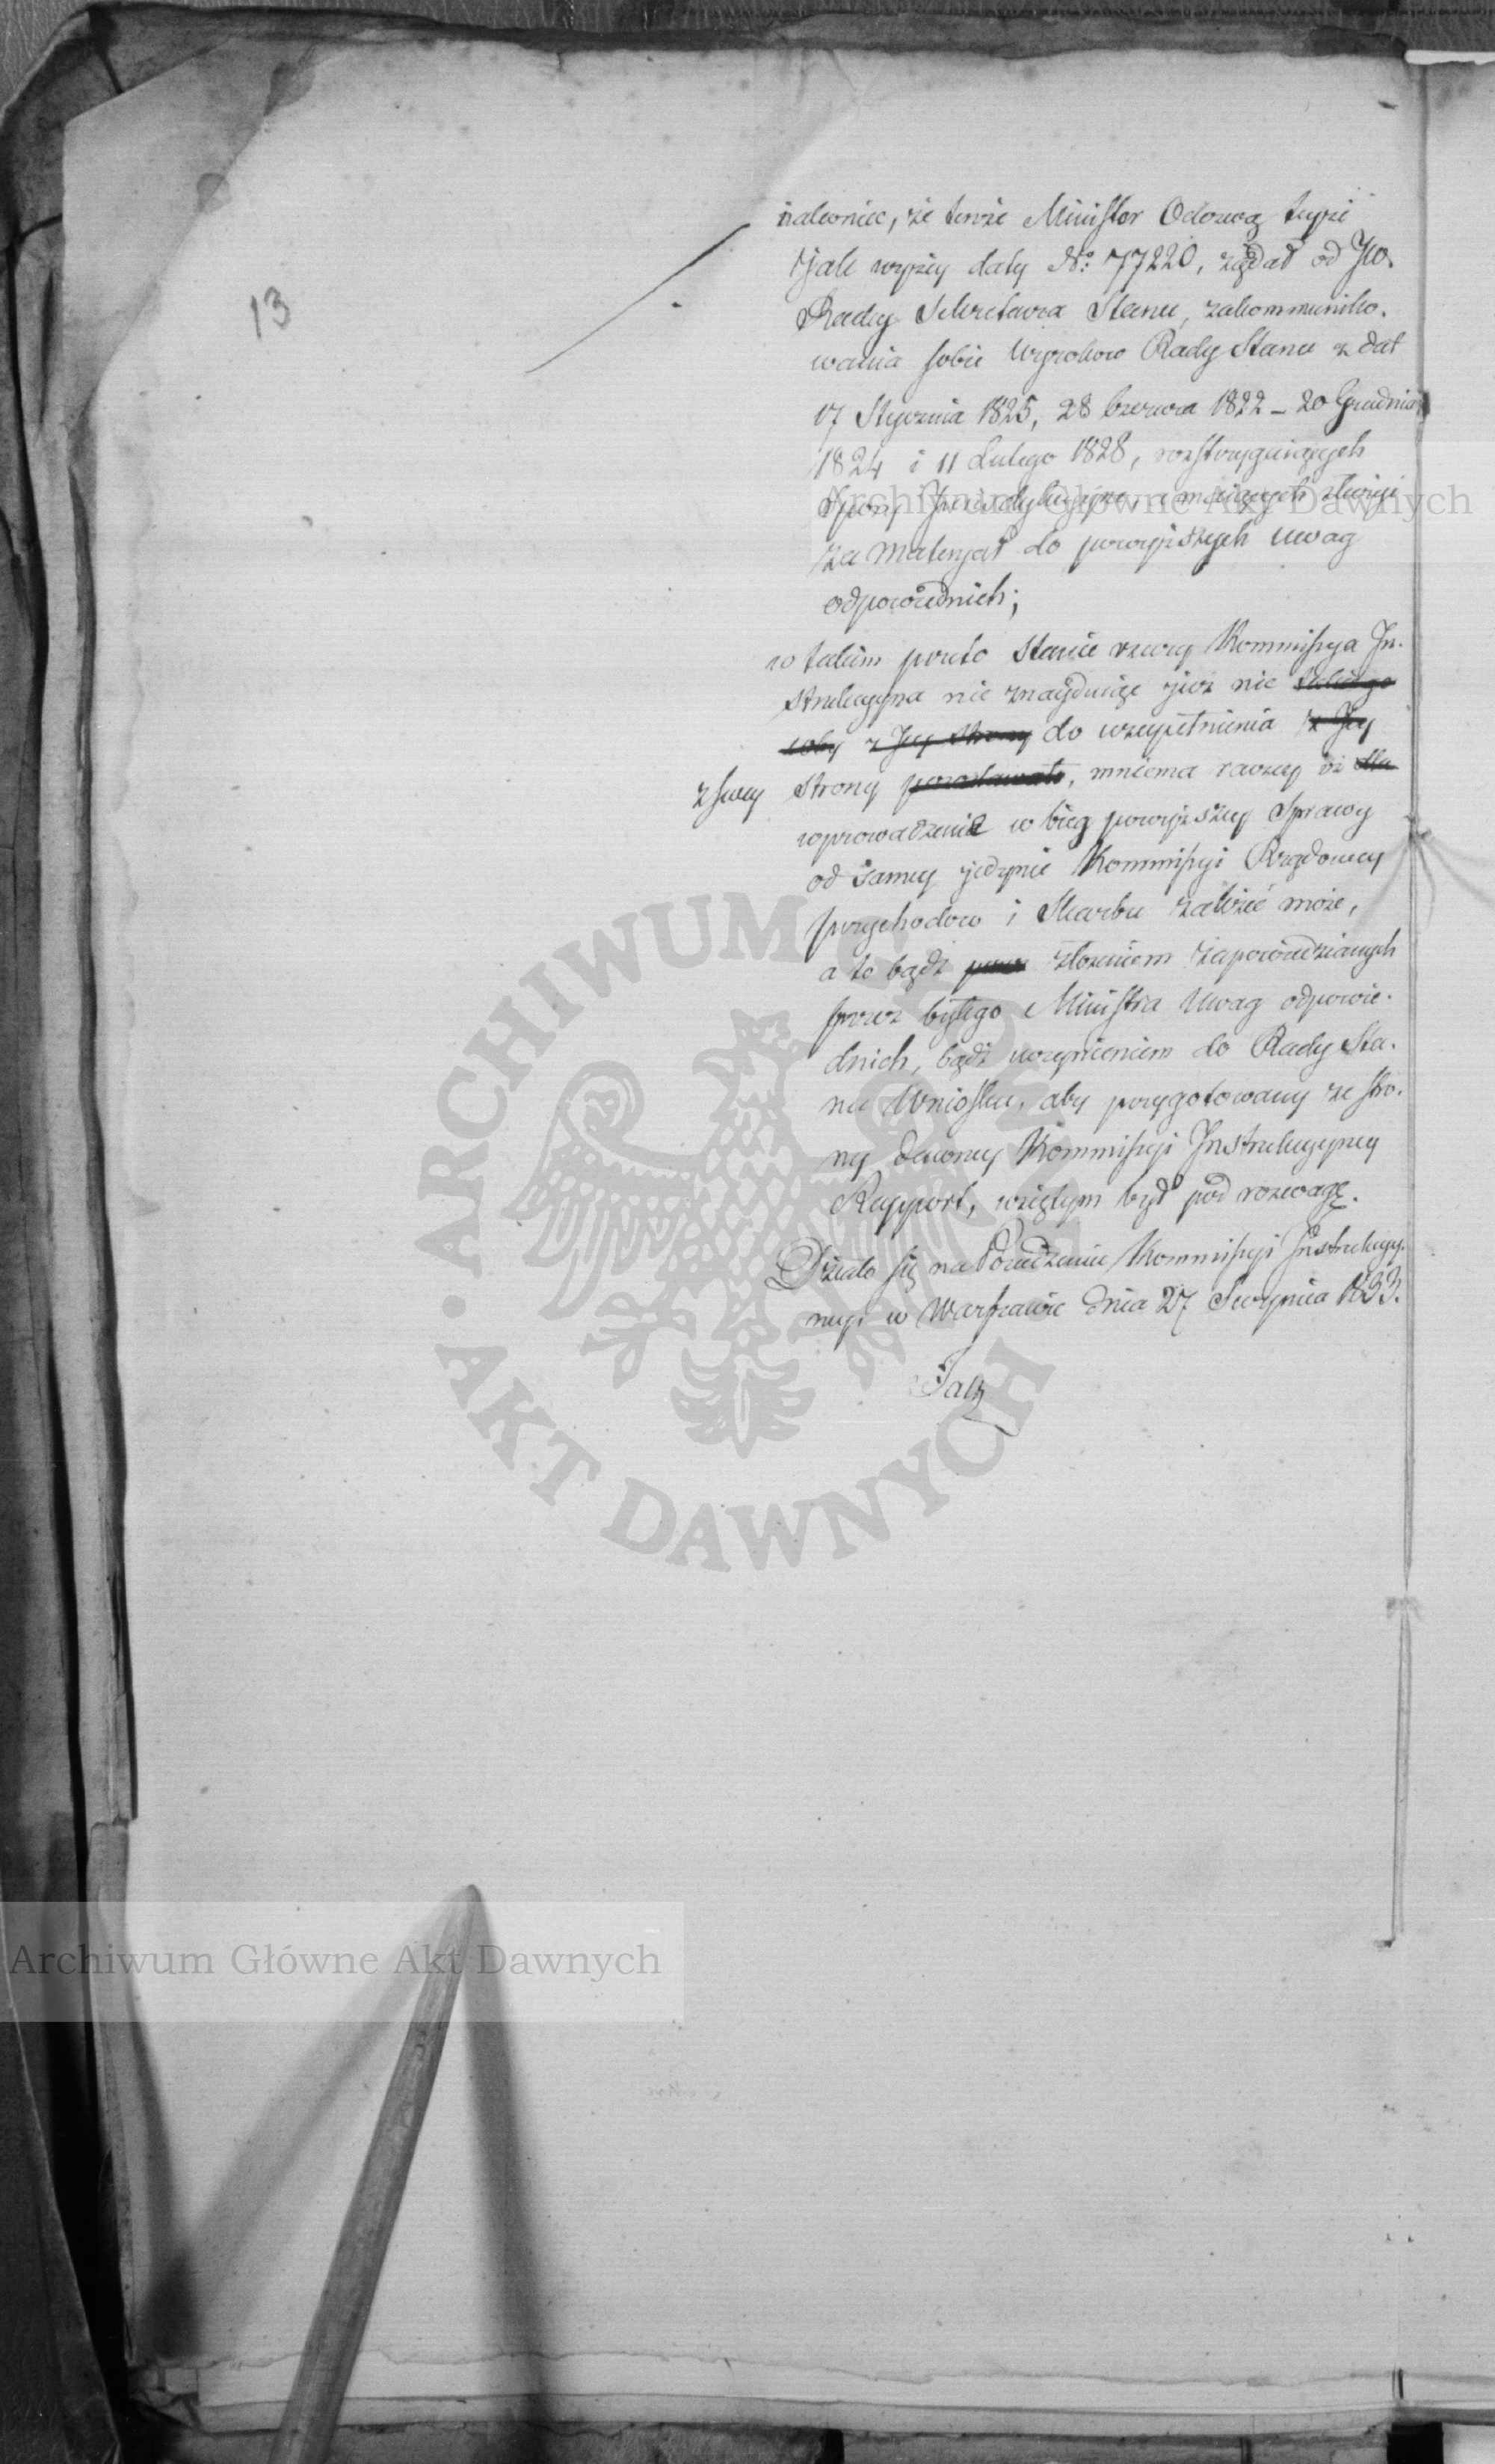 13
nakoniec, że tenże Minister Odezwą teyże
jak wyżey daty No: 77220, żądał od JW.
Radcy Sekretarza Stanu, zakommuniko-
wania sobie Wyroków Rady Stanu z dat
17 Stycznia 1825, 28 Czerwca 1822 – 20 Grudnia
1824 i 11 Lutego 1828, rozstrzygaiących
Spory Jurisdykcyjne, a maiących służyć
za Materjał do powyższych uwag
odpowiednich;
w takim przeto Stanie rzeczy Kommissya In-
strukcyjna nie znayduiąc już nic takiego
coby z Jey Strony do uzupełnienia z Jey
z swey strony pozostawało, mniema raczey iż dla
wprowadzenie w bieg powyższey Sprawy
od samey jedynie Kommissyi Rządowey
przychodow i Skarbu zależeć może,
a to bądź przez złożeniem zapowiedzianych
przez byłego Ministra Uwag odpowie-
dnich, bądź uczynieniem do Rady Sta-
nu Wniosku, aby przygotowany ze stro-
ny dawney Kommissyi Instrukcyjney
Rapport, wziętym był pod rozwagę.
Działo się na Posiedzeniu Kommissyi Instrukcyj-
nej w Warszawie dnia 27 Sierpnia 1833.
Archiwum Główne Akt Dawnych
ARCHIWUM GŁÓWNE • AKT DAWNYCH •
Archiwum Główne Akt Dawnych